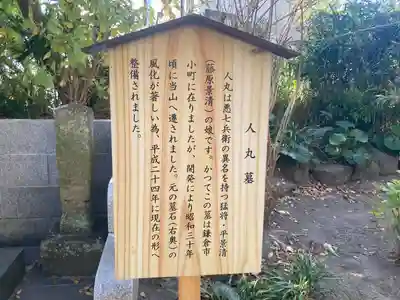 人丸墓
人丸は悪七兵衛の異名を持つ猛将・平景清
(藤原景清)の娘です。かつてこの墓は鎌倉市
小町に在りましたが、開発により昭和三十年
頃に当山へ遷されました。元の墓石(右奥)の
風化が著しい為、平成二十四年に現在の形へ
整備されました。